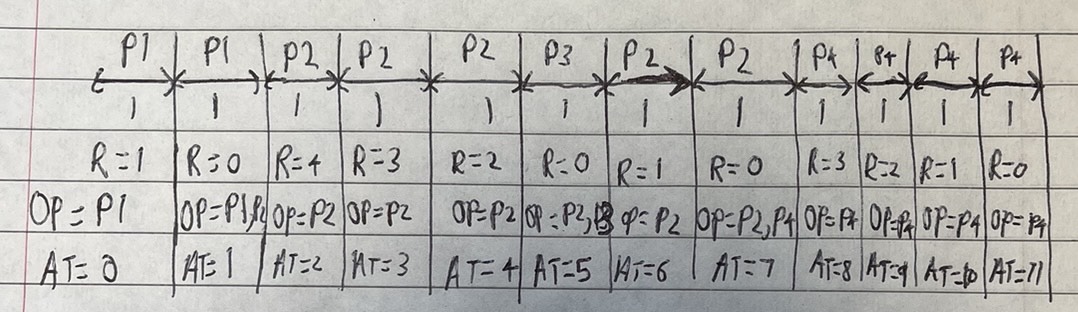 P1 P1 P2 P2 P2 P3 P2 P2 P4 P4 P4 P4
1 1 1 1 1 1 1 1 1 1 1 1
R=1 R=0 R=4 R=3 R=2 R=0 R=1 R=0 R=3 R=2 R=1 R=0
OP=P1 OP=P1,P2 OP=P2 OP=P2 OP=P2 OP=P2,P3 OP=P2 OP=P2,P4 OP=P4 OP=P4 OP=P4 OP=P4
AT=0 AT=1 AT=2 AT=3 AT=4 AT=5 AT=6 AT=7 AT=8 AT=9 AT=10 AT=11